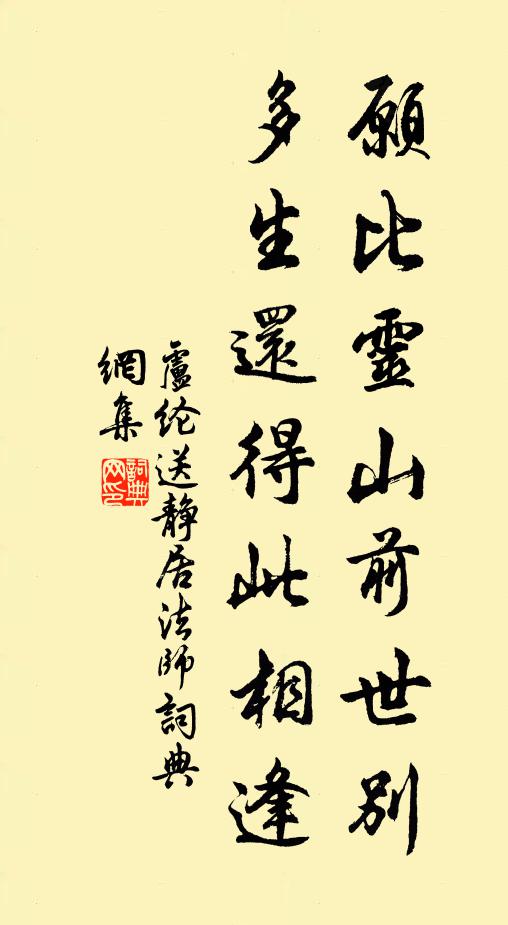 願比靈山前世別
多生還得此相逢
盧纶送静居法師詞典
網集
詞典
网印